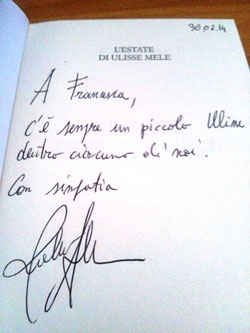 30.07.14
L'ESTATE
DI ULISSE MELE
A Francesca,
c'è sempre un piccolo Ulisse
dentro ciascuno di noi.
Con simpatia